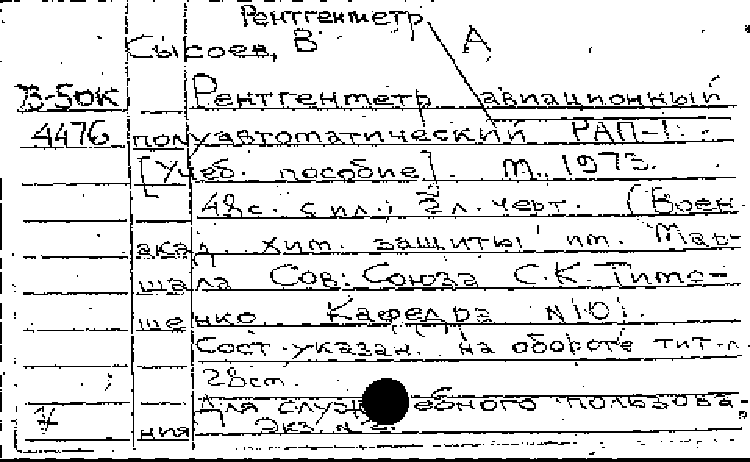 Рентгенметр
Сысоев, В А
В-50К Рентгенметр авиационный
4476 полуавтоматический РАП-1.
[Учеб. пособие]. М., 1973.
48с. с ил.; 2л. черт. (Воен.
акад. хим. защиты им. Мар-
шала Сов. Союза С.К. Тимо-
шенко. Кафедра №10).
Сост. указан. на обороте тит. л.
28см.
Для служебного пользова-
ния Экз. №